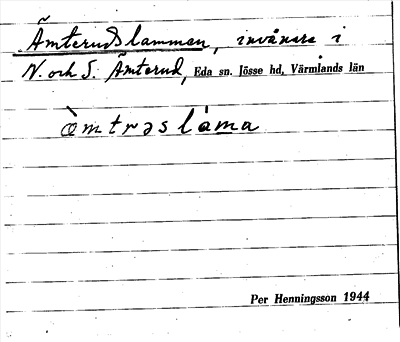 Ämterudslammen, invånare i
N. och S. Ämterud, Eda sn. Jösse hd, Värmlands län
òmtrəslàma
Per Henningsson 1944